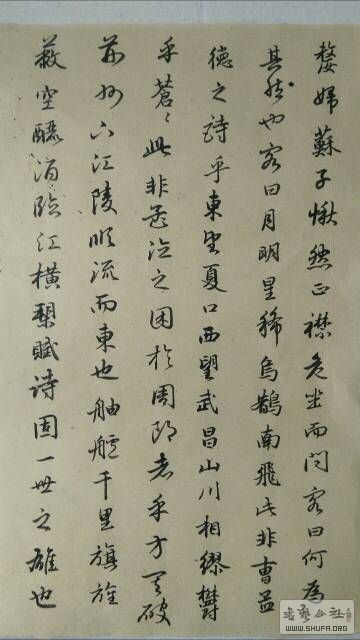 嫠婦蘇子愀然正襟危坐而問客曰何為
其然也客曰月明星稀烏鵲南飛此非曹孟
德之詩乎東望夏口西望武昌山川相繆鬱
乎蒼〻此非孟德之困於周郎者乎方其破
荊州下江陵順流而東也舳艫千里旗旌
蔽空釃酒臨江橫槊賦詩固一世之雄也
书艺公社
WWW.SHUFA.ORG